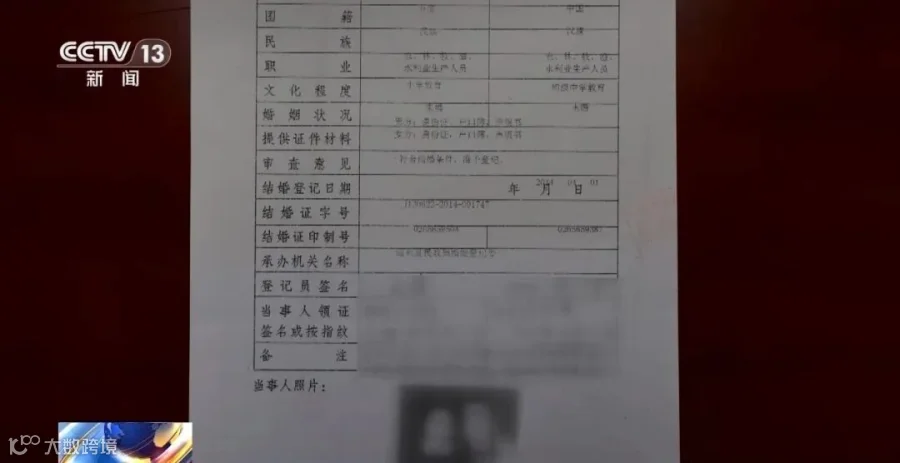 CCTV 13
新闻
国 籍 中国 中国
民 族 汉族 汉族
职 业 农、林、牧、渔、水利业生产人员 农、林、牧、渔、水利业生产人员
文 化 程 度 小学教育 初级中学教育
婚 姻 状 况 未婚 未婚
提供证件材料 男方：身份证、户口簿、声明书
女方：身份证、户口簿、声明书
审 查 意 见 符合结婚条件，准予登记。
结婚登记日期 年 月 日
结 婚 证 字 号
结婚证印制号
承办机关名称
登 记 员 签 名
当 事 人 领 证
签名或按指纹
备 注
当事人照片：
大数跨境